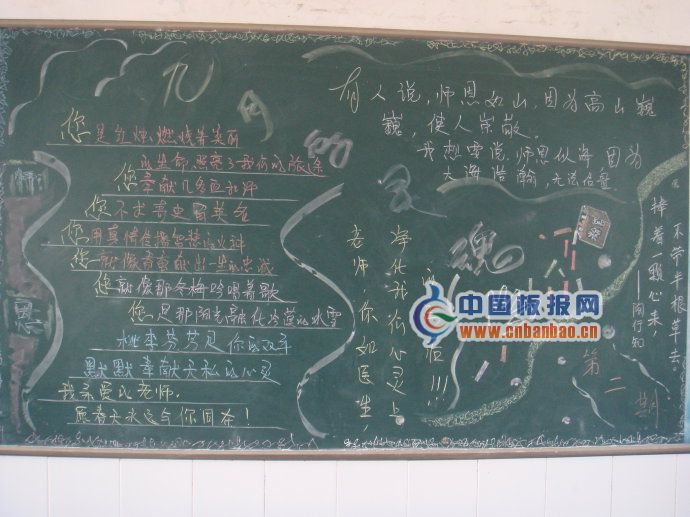 九月的
有人说，师恩如山，因为高山巍
巍，使人崇敬。
我想要说，师恩似海，因为
大海浩瀚，无法估量
您是红烛燃烧着美丽
您奉献几多
您不求青史留英名
您用真情传播智慧的火种
您就像春蚕献出一生的忠诚
您就像那冬梅吟唱着歌
您是那阳光融化冷漠的冰雪
桃李芬芳是你的
默默奉献无私的心灵
我亲爱的老师，
愿春天永远与你同在！
老师，你如医生，
净化我们心灵上
魂
捧着一颗心来
不带半根草去
——陶行知
第二期
师
恩
中国板报网
www.cnbanbao.cn